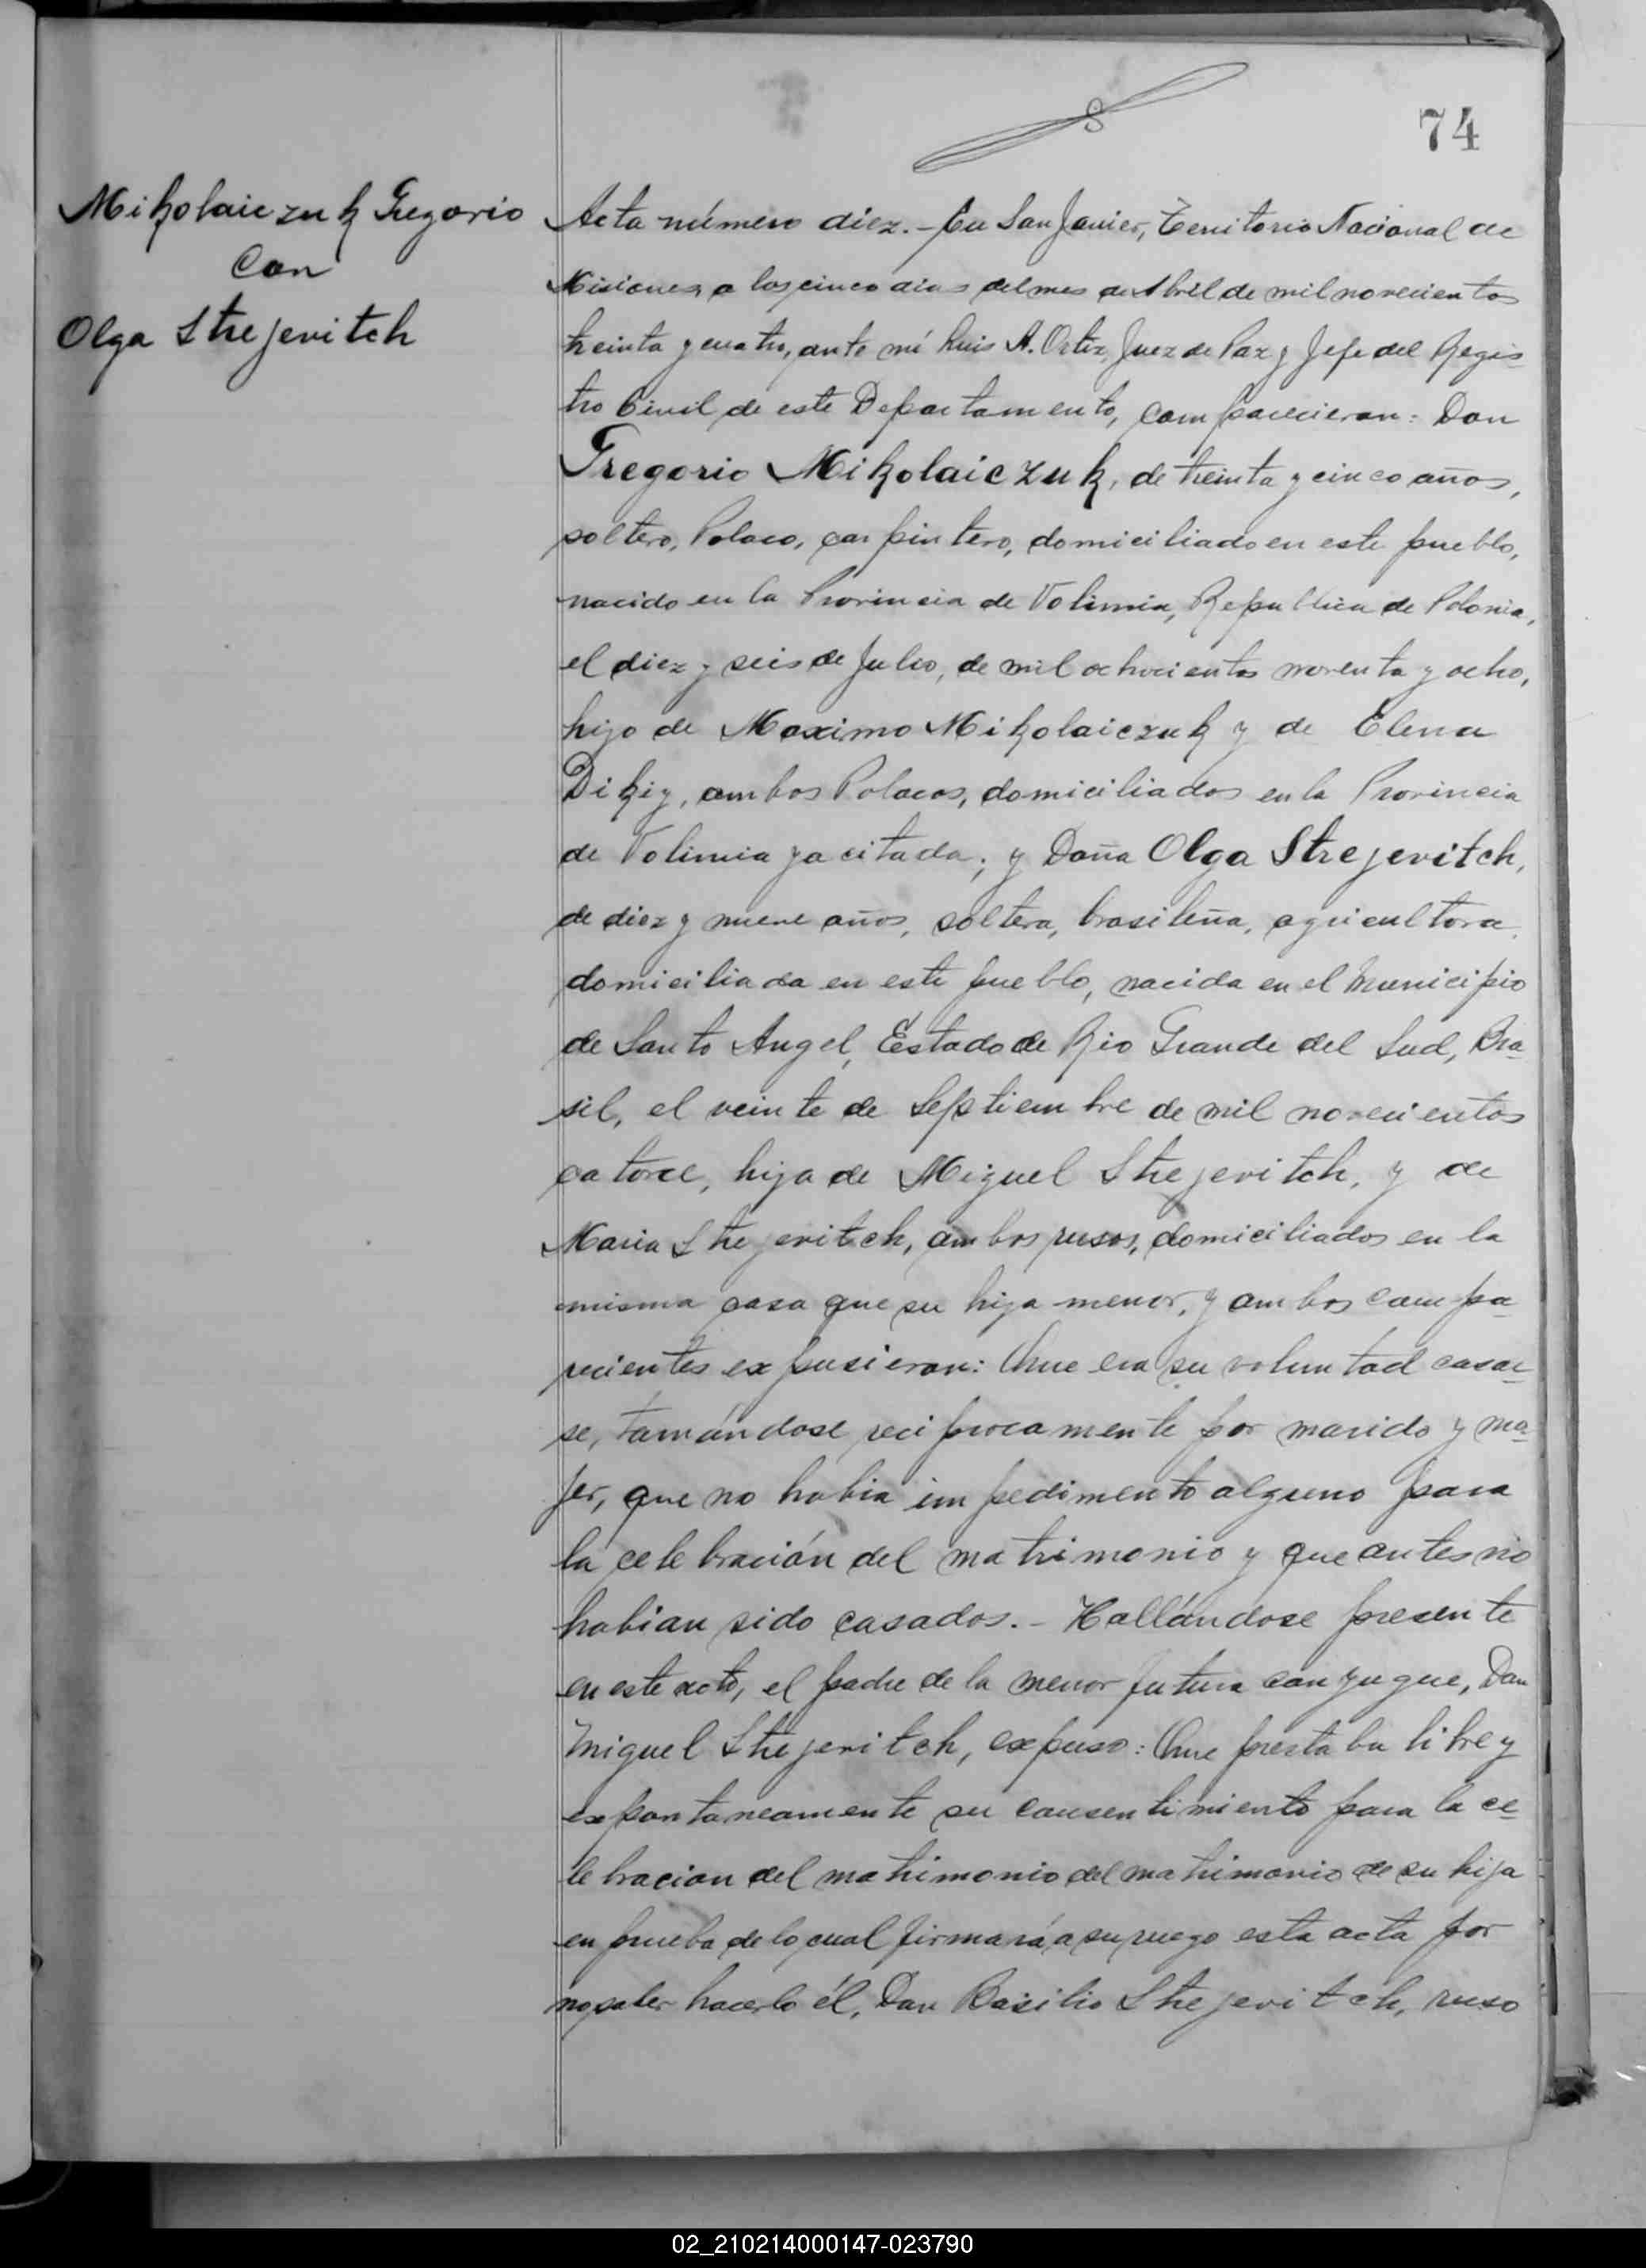 74
Mikolaiczuk Gregorio
Con
Olga Strejevitch
Acta número diez.- En San Javier, Territorio Nacional de
Misiones, a los cinco dias del mes de Abril de mil novecientos
treinta y cuatro, ante mí Luis A. Ortiz, Juez de Paz y Jefe del Regis-
tro Civil de este Departamento, comparecieron: Don
Gregorio Mikolaiczuk, de treinta y cinco años,
soltero, Polaco, carpintero, domiciliado en este pueblo,
nacido en la Provincia de Volinia, Republica de Polonia,
el diez y seis de Julio, de mil ochocientos noventa y ocho,
hijo de Maximo Mikolaiczuk y de Elena
Dikiy, ambos Polacos, domiciliados en la Provincia
de Volinia ya citada; y Doña Olga Strejevitch,
de diez y nueve años, soltera, brasileña, agricultora,
domiciliada en este pueblo, nacida en el Municipio
de Santo Angel, Estado de Rio Grande del Sud, Bra-
sil, el veinte de Septiembre de mil novecientos
catorce, hija de Miguel Strejevitch, y de
Maria Strejevitch, ambos rusos, domiciliados en la
misma casa que su hija menor, y ambos compa-
recientes expusieron: Que era su voluntad casar-
se, tomándose reciprocamente por marido y mu-
jer, que no habia impedimento alguno para
la celebración del matrimonio y que antes no
habian sido casados.- Hallándose presente
en este acto, el padre de la menor futura conyugue, Don
Miguel Strejevitch, expuso: Que prestaba libre y
expontaneamente su consentimiento para la ce-
lebracion del matrimonio del matrimonio de su hija
en prueba de lo cual firmará, a su ruego esta acta por
no saber hacerlo él, Don Basilio Strejevitch, ruso
02_210214000147-023790